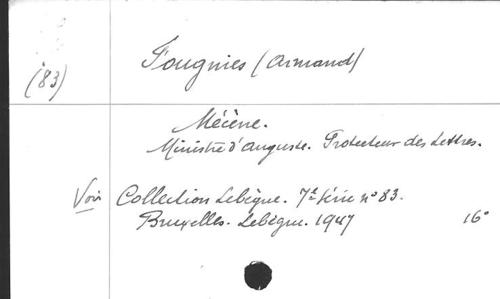 Fougnies (Armand)
('83)
Mécène.
Ministre d'Auguste. Protecteur des Lettres.
Voir Collection Lebègue. 7e série n° 83.
Bruxelles. Lebègue. 1947 16°